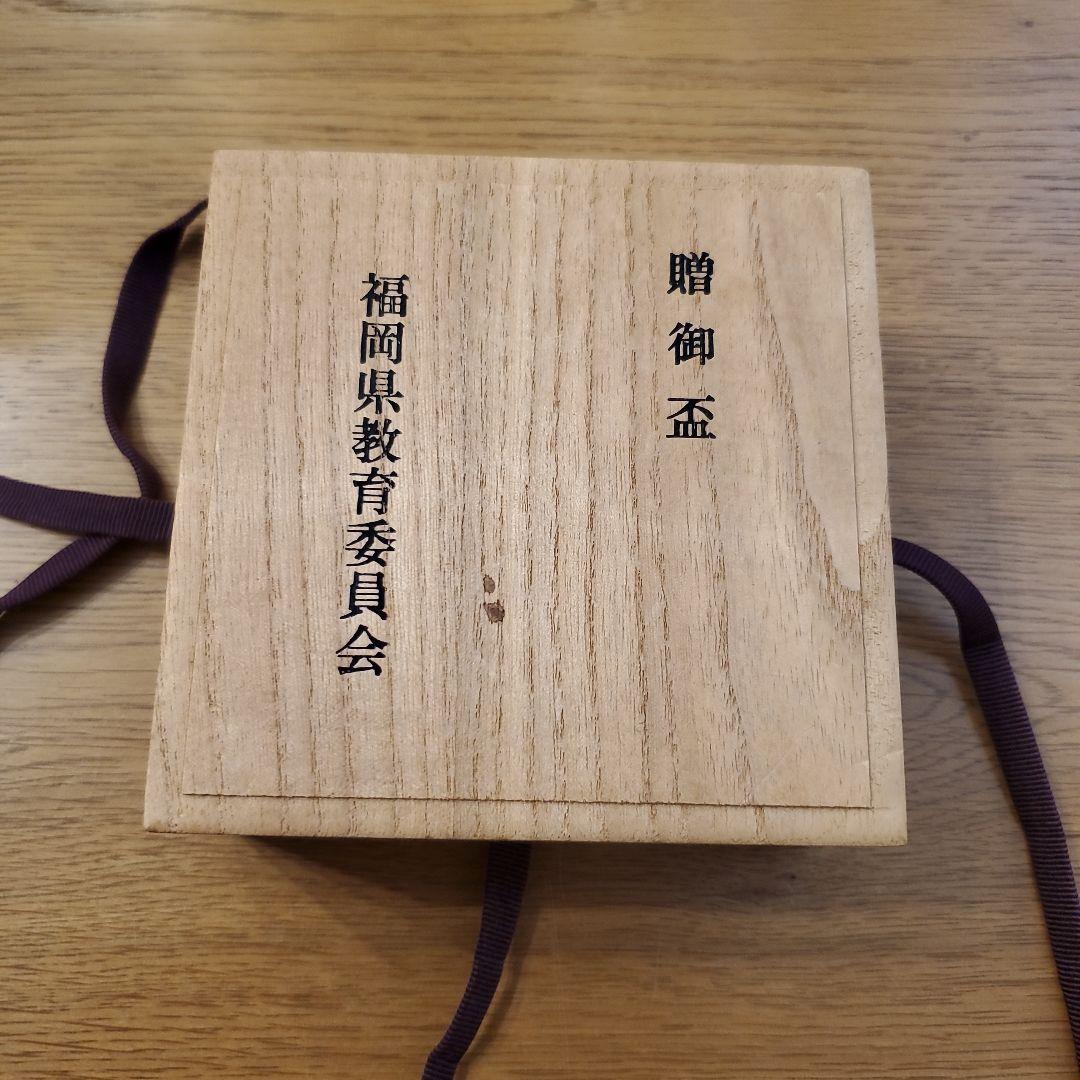 贈御盃
福岡県教育委員会